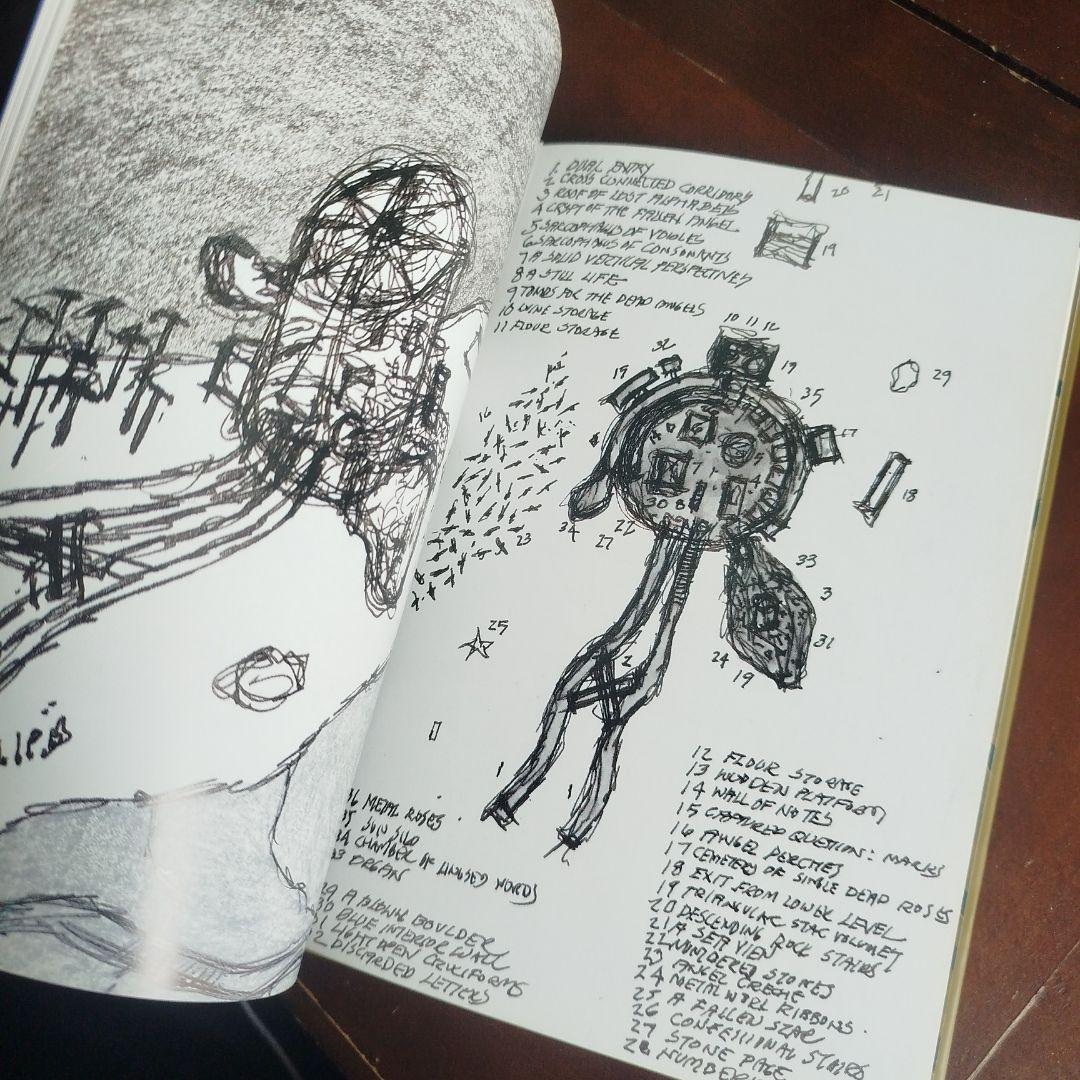 1. DUAL ENTRY
2 CROSS CONNECTED CORRIDORS
3 ROOF OF LOST ALPHABETS
4 CRYPT OF THE FALLEN ANGEL
5 SARCOPHAGUS OF VOWLES
6 SARCOPHAGUS OF CONSONANTS
7 A SOLID VERTICAL PERSPECTIVES
8 A STILL LIFE
9 TOMBS FOR THE DEAD ANGELS
10 WINE STORAGE
11 FLOUR STORAGE
20 21
19
10 11 12
32
19
19
35
29
17
16
18
7
30 8
34
22
27
23
33
3
31
24
19
25
2
1
1
36 METAL ROSES
35 SUN SILO
34 CHAMBER OF UNUSED WORDS
33 ORGAN
29 A BLEWE BOULDER
30 BLUE INTERIOR WALL
31 LIGHT OPEN CRUCIFORMS
32 DISCARDED LETTERS
12 FLOUR STORAGE
13 WOODEN PLATFORM
14 WALL OF NOTES
15 CAPTURED QUESTION: MARKS
16 ANGEL PERCHES
17 CEMETERY OF SINGLE DEAD ROSES
18 EXIT FROM LOWER LEVEL
19 TRIANGULAR STAC VOLUMET
20 DESCENDING ROCK STAIRS
21 A SEA VIEW
22 NUMBERED STONES
23 ANGEL CRECHE
24 METALWORK RIBBONS.
25 A FALLEN STAR
26 CONFESSIONAL STAIRS
27 STONE PAGE
28 NUMBER